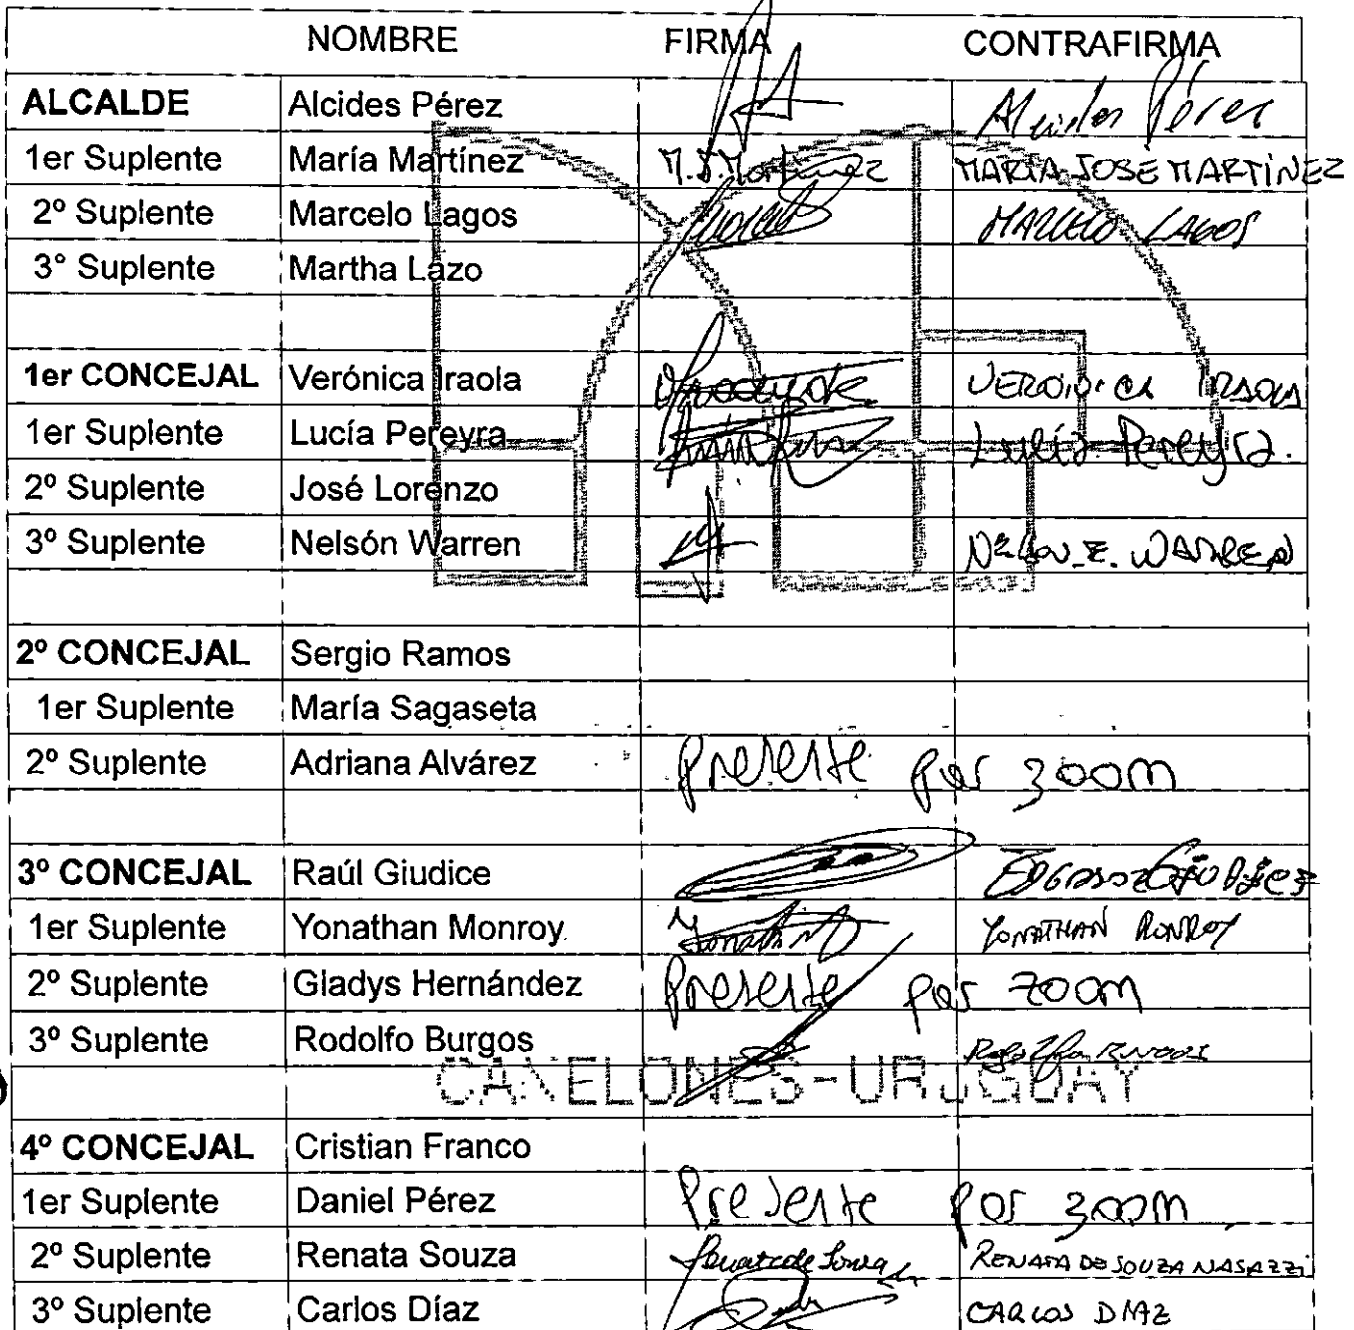 NOMBRE FIRMA CONTRAFIRMA
ALCALDE Alcides Pérez Alcides Pérez
1er Suplente María Martínez M.J.Martínez MARÍA JOSE MARTÍNEZ
2º Suplente Marcelo Lagos MARCELO LAGOS
3° Suplente Martha Lazo
1er CONCEJAL Verónica Iraola VERONICA IRAOLA
1er Suplente Lucía Pereyra Lucía Pereyra.
2º Suplente José Lorenzo
3º Suplente Nelsón Warren NELSON E. WARREN
2º CONCEJAL Sergio Ramos
1er Suplente María Sagaseta
2º Suplente Adriana Alvárez Presente por zoom
3º CONCEJAL Raúl Giudice
1er Suplente Yonathan Monroy Yonathan YONATHAN MONROY
2º Suplente Gladys Hernández Presente por zoom
3º Suplente Rodolfo Burgos Rodolfo BURGOS
CANELONES-URUGUAY
4º CONCEJAL Cristian Franco
1er Suplente Daniel Pérez Presente por zoom
2º Suplente Renata Souza Renata de Souza RENATA DE SOUZA NASAZZI
3º Suplente Carlos Díaz CARLOS DIAZ